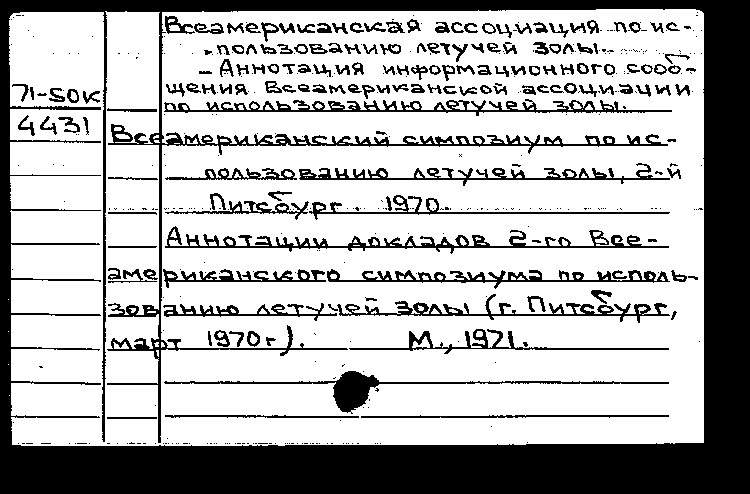 Всеамериканская ассоциация по ис-
пользованию летучей золы.
– Аннотация информационного сооб-
71-50к
щения Всеамериканской ассоциации
по использованию летучей золы.
4431
Всеамериканский симпозиум по ис-
пользованию летучей золы, 2-й
Питсбург. 1970.
Аннотации докладов 2-го Все-
американского симпозиума по исполь-
зованию летучей золы (г. Питсбург,
март 1970г). М., 1971.